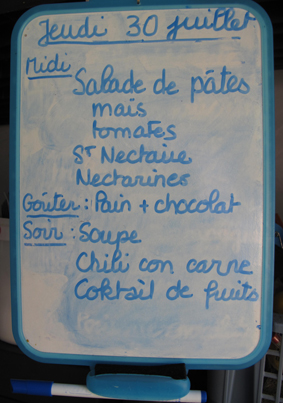 Jeudi 30 juillet
Midi
Salade de pâtes
mais
tomates
St Nectaire
Nectarines
Goûter : Pain + chocolat
Soir : Soupe
Chili con carne
Coktail de fruits